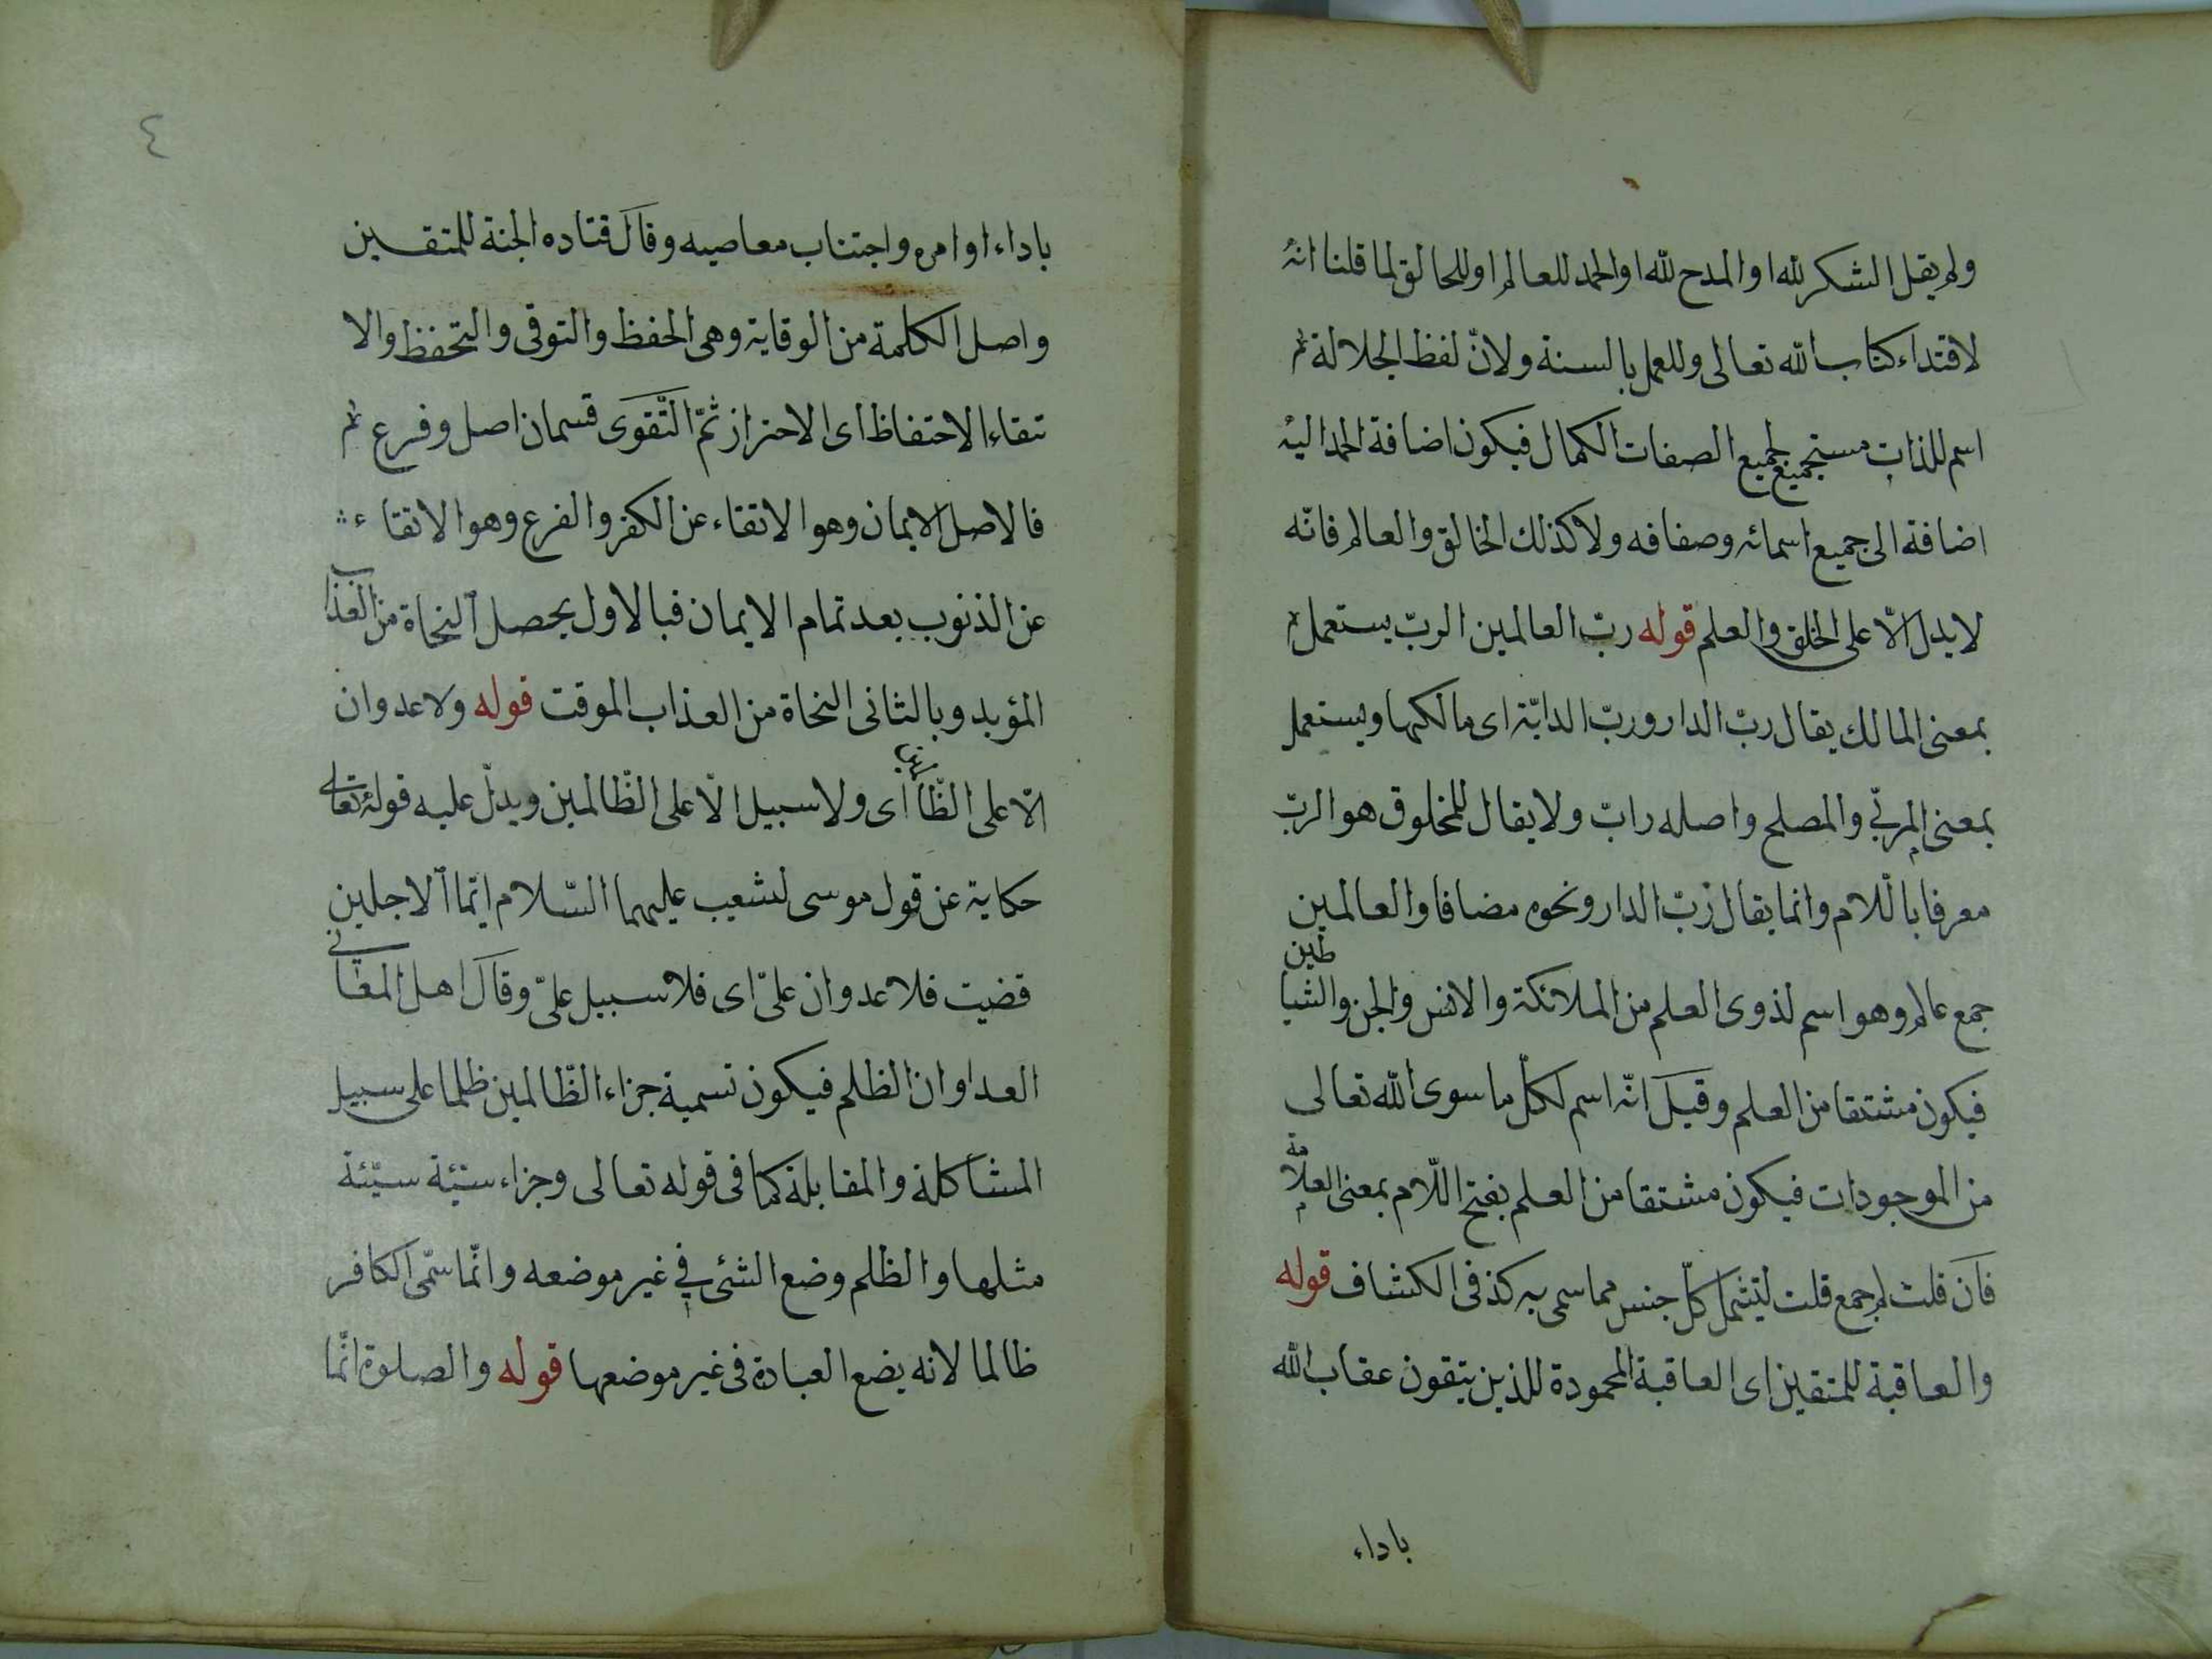 ولم يقل الشكر لله او المدح لله او الحمد للعالم او للخالق لما قلنا انه
لاقتداء كتاب الله تعالى وللعمل بالسنة ولانّ لفظ الجلالة
اسم للذات مستجميع لجميع الصفات الكمال فيكون اضافة الحمد اليه
اضافة الى جميع اسمائه وصفافه ولا كذلك الخالق والعالم فانّه
لا يدل الّا على الخلق والعلم قوله ربّ العالمين الربّ يستعمل
بمعنى المالك يقال ربّ الدار وربّ الدابّة اى مالكها ويستعمل
بمعنى المربّي والمصلح واصله رابّ ولا يقال للمخلوق هو الربّ
معرفا باللّام وانما يقال ربّ الدار ونحوه مضافا والعالمين
جمع عالم وهو اسم لذوى العلم من الملائكة والانس والجن والشياطين
فيكون مشتقا من العلم وقيل انّه اسم لكلّ ما سوى الله تعالى
من الموجودات فيكون مشتقا من العلم بفتح اللّام بمعنى العلّامة
فان قلت لم جمع قلت ليشمل كلّ جنس مما سمى به كذ فى الكشاف قوله
والعاقبة للمتقين اى العاقبة المحمودة للذين يتقون عقاب الله
باداء
٤
باداء اوامره واجتناب معاصيه وقال قتاده الجنة للمتقين
واصل الكلمة من الوقاية وهى الحفظ والتوقى والتحفظ والا
تقاء الاحتفاظ اى الاحتراز ثمّ التّقوى قسمان اصل وفرع
فالاصل الايمان وهو الاتقاء عن الكفر والفرع وهو الاتقاء
عن الذنوب بعد تمام الايمان فبالاول يحصل النجاة من العذاب
المؤبد وبالثانى النجاة من العذاب الموقت قوله ولا عدوان
الّا على الظّالمين اى ولا سبيل الّا على الظّالمين ويدلّ عليه قوله تعالى
حكاية عن قول موسى لشعيب عليهما السّلام ايّما الاجلين
قضيت فلا عدوان علىّ اى فلا سبيل علىّ وقال اهل المعانى
العداوان الظلم فيكون تسمية جزاء الظّالمين ظلما على سبيل
المشاكلة والمقابلة كما فى قوله تعالى وجزاء سيّئة سيّئة
مثلها والظلم وضع الشئ في غير موضعه وانّما سمّى الكافر
ظالما لانه يضع العبادة فى غير موضعها قوله والصلوة انّما